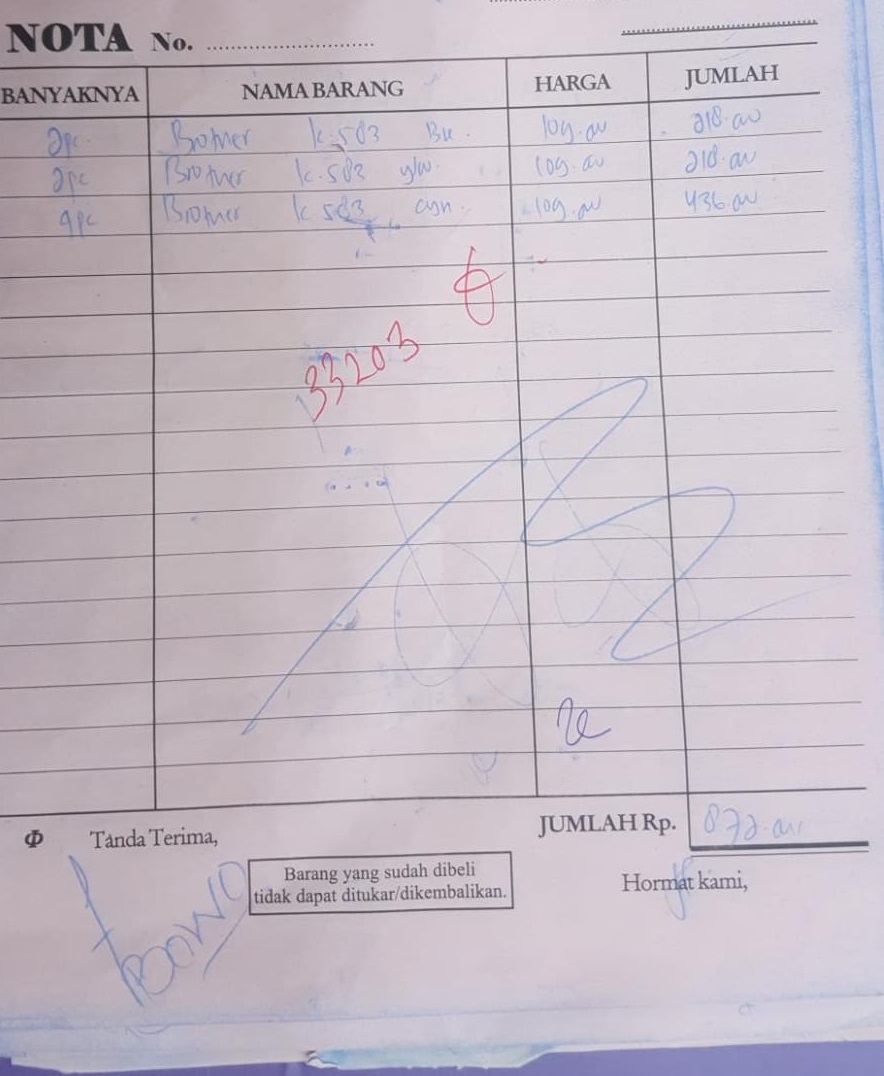 NOTA No. ............................
BANYAKNYA NAMA BARANG HARGA JUMLAH
2pc. Brother k.583 Bu. 109.000 218.000
2pc Brother k.583 y/w. 109.000 218.000
4pc Brother k 583 cyn. 109.000 436.000
33203
Φ Tanda Terima, JUMLAH Rp. 872.000
Barang yang sudah dibeli
tidak dapat ditukar/dikembalikan.
Hormat kami,
BOWO